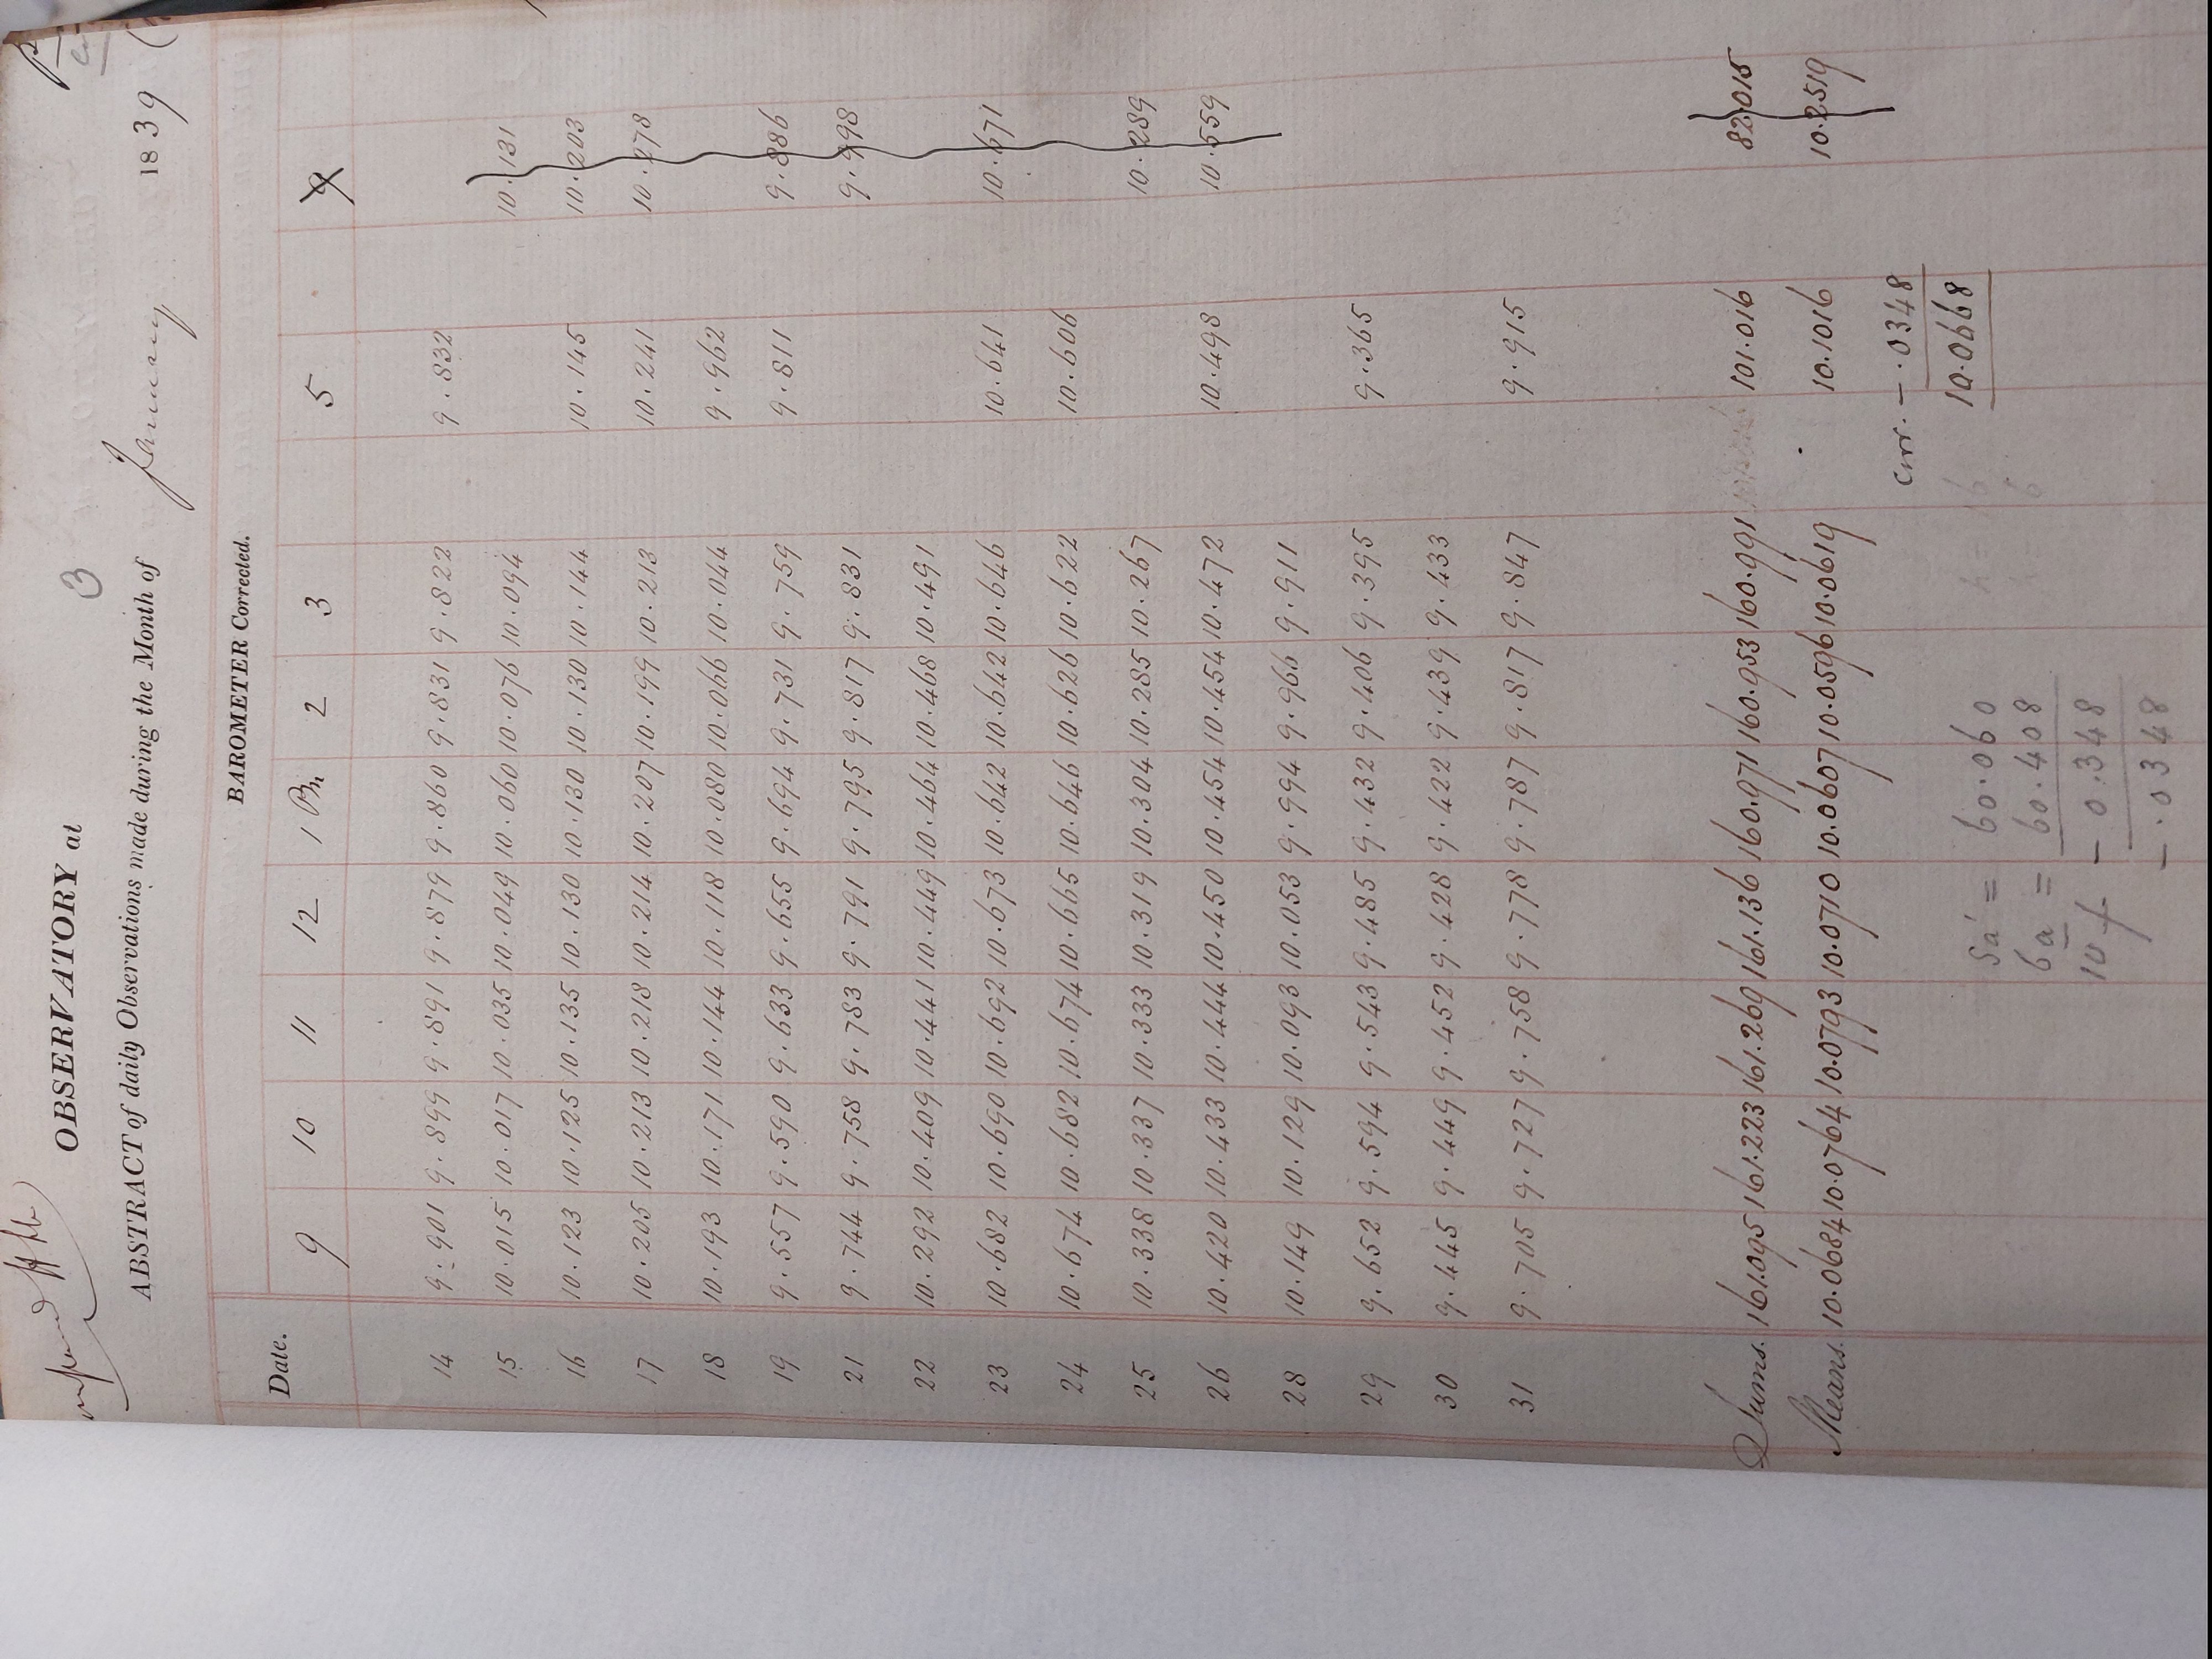 OBSERVATORY at 3
ABSTRACT of daily Observations made during the Month of January 1839
BAROMETER Corrected.
Date.
9 10 11 12 1 Pm 2 3 5 9
14 9.901 9.899 9.891 9.879 9.860 9.831 9.822 9.832
15 10.015 10.017 10.035 10.049 10.060 10.076 10.094 10.131
16 10.123 10.125 10.135 10.130 10.130 10.130 10.144 10.145 10.203
17 10.205 10.213 10.218 10.214 10.207 10.199 10.213 10.241 10.278
18 10.193 10.171 10.144 10.118 10.080 10.066 10.044 9.962
19 9.557 9.590 9.633 9.655 9.694 9.731 9.759 9.811 9.886
21 9.744 9.758 9.783 9.791 9.795 9.817 9.831 9.998
22 10.292 10.409 10.441 10.449 10.464 10.468 10.491
23 10.682 10.690 10.692 10.673 10.642 10.642 10.646 10.641 10.671
24 10.674 10.682 10.674 10.665 10.646 10.626 10.622 10.606
25 10.338 10.337 10.333 10.319 10.304 10.285 10.267 10.289
26 10.420 10.433 10.444 10.450 10.454 10.454 10.472 10.498 10.559
28 10.149 10.129 10.093 10.053 9.994 9.966 9.911
29 9.652 9.594 9.543 9.485 9.432 9.406 9.395 9.365
30 9.445 9.449 9.452 9.428 9.422 9.439 9.433
31 9.705 9.727 9.758 9.778 9.787 9.817 9.847 9.915
Sums. 161.095 161.223 161.269 161.136 160.971 160.953 160.991 101.016 82.015
Means. 10.0684 10.0764 10.0793 10.0710 10.0607 10.0596 10.0619 10.1016 10.2519
corr. – .0348
10.0668
Sa' = 60.060
6a = 60.408
10 f – 0.348
– .0348